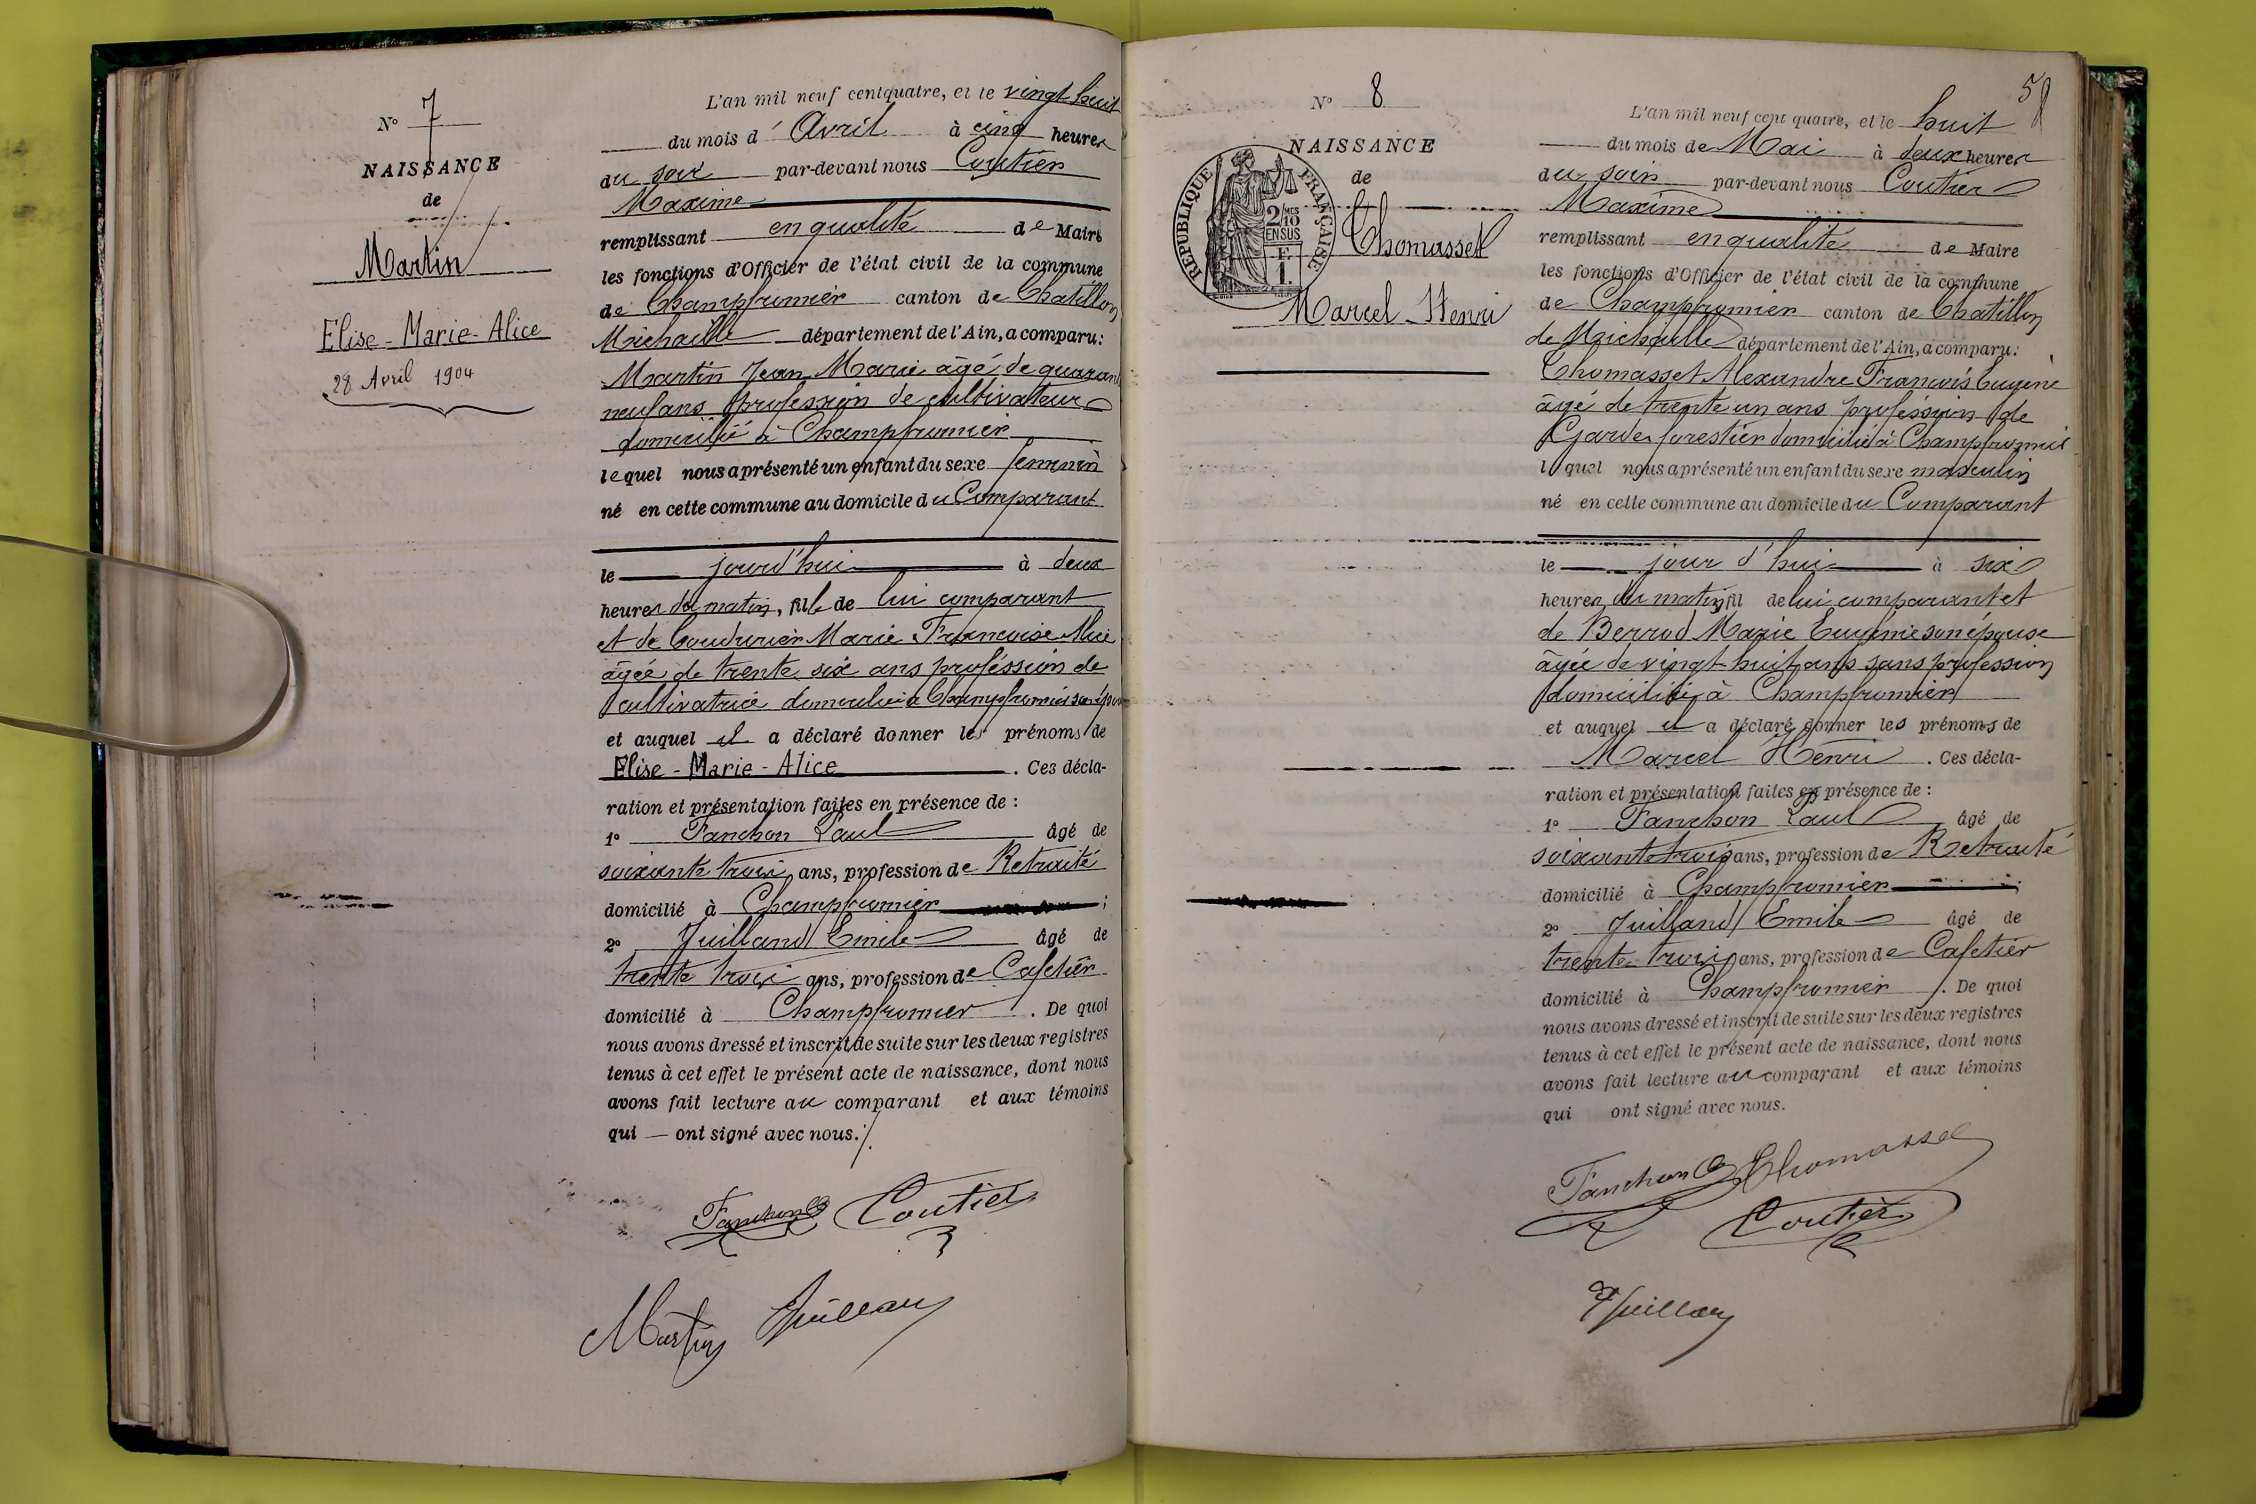 N° 7
NAISSANCE
de
Martin
Elise - Marie - Alice
28 Avril 1904
L'an mil neuf cent quatre, et le vingt huit
du mois d' Avril à cinq heures
du soir par-devant nous Coutier
Maxime
remplissant en qualité de Maire
les fonctions d'Officier de l'état civil de la commune
de Champfromier canton de Chatillon
Michaille département de l'Ain, a comparu:
Martin Jean Marie âgé de quarante
neuf ans profession de cultivateur
domicilié à Champfromier
lequel nous a présenté un enfant du sexe féminin
né en cette commune au domicile du Comparant
le jourd'hui à deux
heures du matin, fille de lui comparant
et de Coudurier Marie Françoise Alice
âgée de trente six ans proféssion de
cultivatrice domiciliée à Champfromier son épouse
et auquel il a déclaré donner les prénoms de
Elise - Marie - Alice . Ces décla-
ration et présentation faites en présence de :
1° Tanchon Paul âgé de
soixante trois ans, profession de Retraité
domicilié à Champfromier ;
2° Juilland Emile âgé de
trente trois ans, profession de Cafetier
domicilié à Champfromier . De quoi
nous avons dressé et inscrit de suite sur les deux registres
tenus à cet effet le présent acte de naissance, dont nous
avons fait lecture au comparant et aux témoins
qui — ont signé avec nous.
Tanchon Coutier
Martin Juilland
58
N° 8
NAISSANCE
de
Thomasset
Marcel - Henri
RÉPUBLIQUE FRANÇAISE
2/10 MES
EN SUS
F.
1.
L'an mil neuf cent quatre, et le huit
du mois de Mai à deux heures
du soir par-devant nous Coutier
Maxime
remplissant en qualité de Maire
les fonctions d'Officier de l'état civil de la commune
de Champfromier canton de Chatillon
de Michaille département de l'Ain, a comparu:
Thomasset Alexandre François Eugène
âgé de trente un ans proféssion de
Garde forestier domicilié à Champfromier
lequel nous a présenté un enfant du sexe masculin
né en cette commune au domicile du Comparant
le jour d'hui à six
heures du matin fil de lui comparant et
de Berrod Marie Eugénie son épouse
âgée de vingt huit ans sans profession
domiciliée à Champfromier
et auquel il a déclaré donner les prénoms de
Marcel Henri . Ces décla-
ration et présentation faites en présence de :
1° Tanchon Paul âgé de
soixante trois ans, profession de Retraité
domicilié à Champfromier ;
2° Juilland Emile âgé de
trente trois ans, profession de Cafetier
domicilié à Champfromier . De quoi
nous avons dressé et inscrit de suite sur les deux registres
tenus à cet effet le présent acte de naissance, dont nous
avons fait lecture au comparant et aux témoins
qui ont signé avec nous.
Tanchon Thomasset
Coutier
Juilland